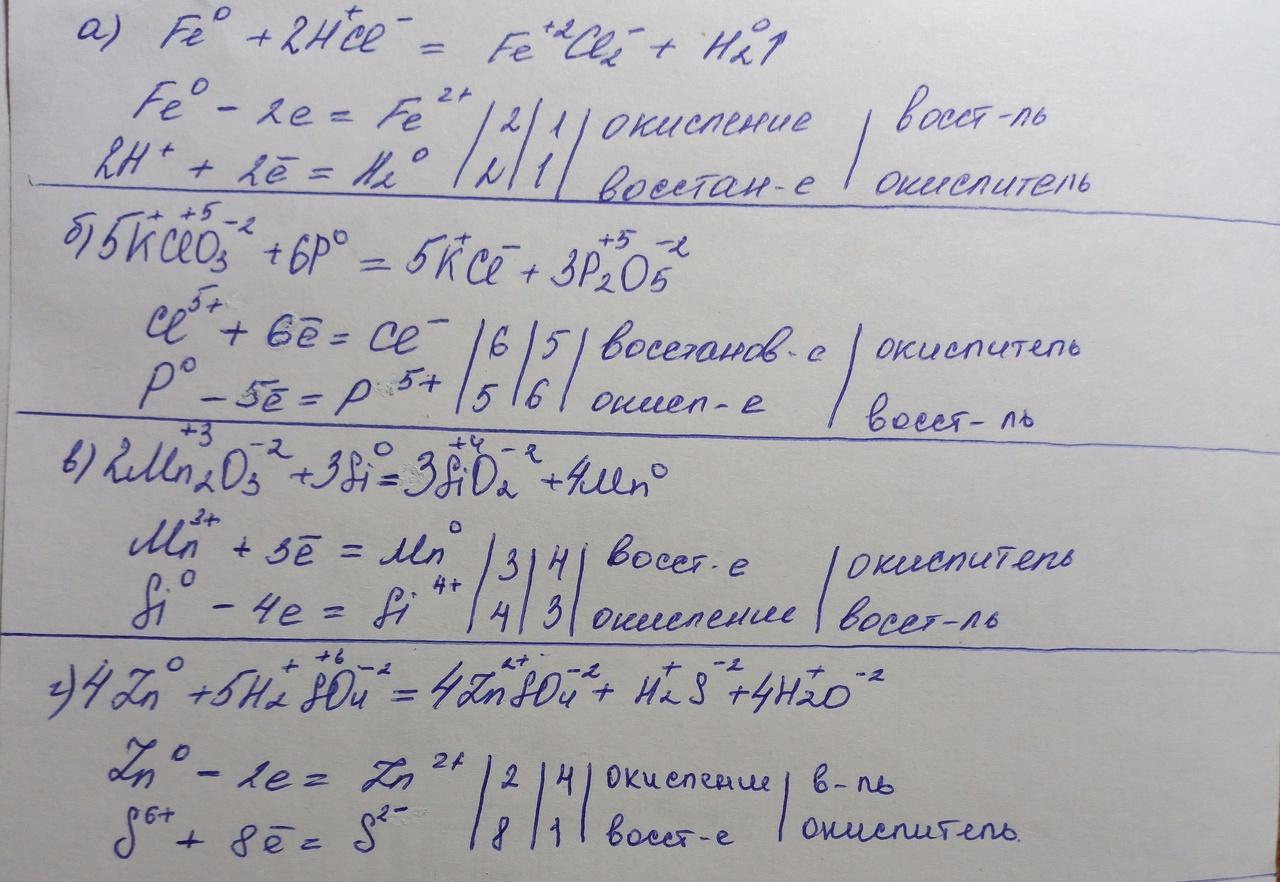 а) Fe⁰ + 2H⁺Cl⁻ = Fe⁺²Cl₂⁻ + H₂⁰↑
Fe⁰ - 2e = Fe²⁺ | 2 | 1 | окисление | восст-ль
2H⁺ + 2ē = H₂⁰ | 2 | 1 | восстан-е | окислитель
б) 5K⁺Cl⁺⁵O₃⁻² + 6P⁰ = 5K⁺Cl⁻ + 3P₂⁺⁵O₅⁻²
Cl⁵⁺ + 6ē = Cl⁻ | 6 | 5 | восстанов-е | окислитель
P⁰ - 5ē = P⁵⁺ | 5 | 6 | окисл-е | восст-ль
в) 2Mn₂⁺³O₃⁻² + 3Si⁰ = 3Si⁺⁴O₂⁻² + 4Mn⁰
Mn³⁺ + 3ē = Mn⁰ | 3 | 4 | восст-е | окислитель
Si⁰ - 4e = Si⁴⁺ | 4 | 3 | окисление | восст-ль
г) 4Zn⁰ + 5H₂⁺S⁺⁶O₄⁻² = 4Zn²⁺SO₄⁻² + H₂⁺S⁻² + 4H₂⁺O⁻²
Zn⁰ - 2e = Zn²⁺ | 2 | 4 | окисление | в-ль
S⁶⁺ + 8ē = S²⁻ | 8 | 1 | восст-е | окислитель.